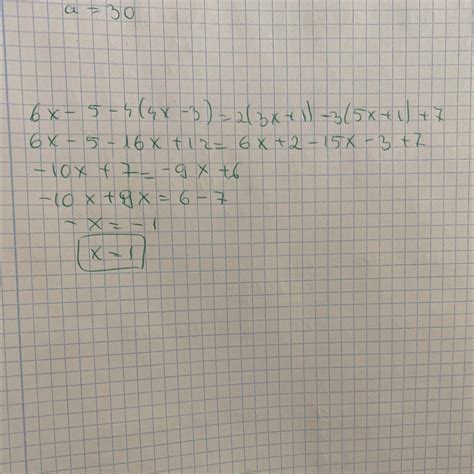 a = 30
6x - 5 - 4(4x - 3) = 2(3x + 1) - 3(5x + 1) + 7
6x - 5 - 16x + 12 = 6x + 2 - 15x - 3 + 7
-10x + 7 = -9x + 6
-10x + 9x = 6 - 7
-x = -1
x = 1